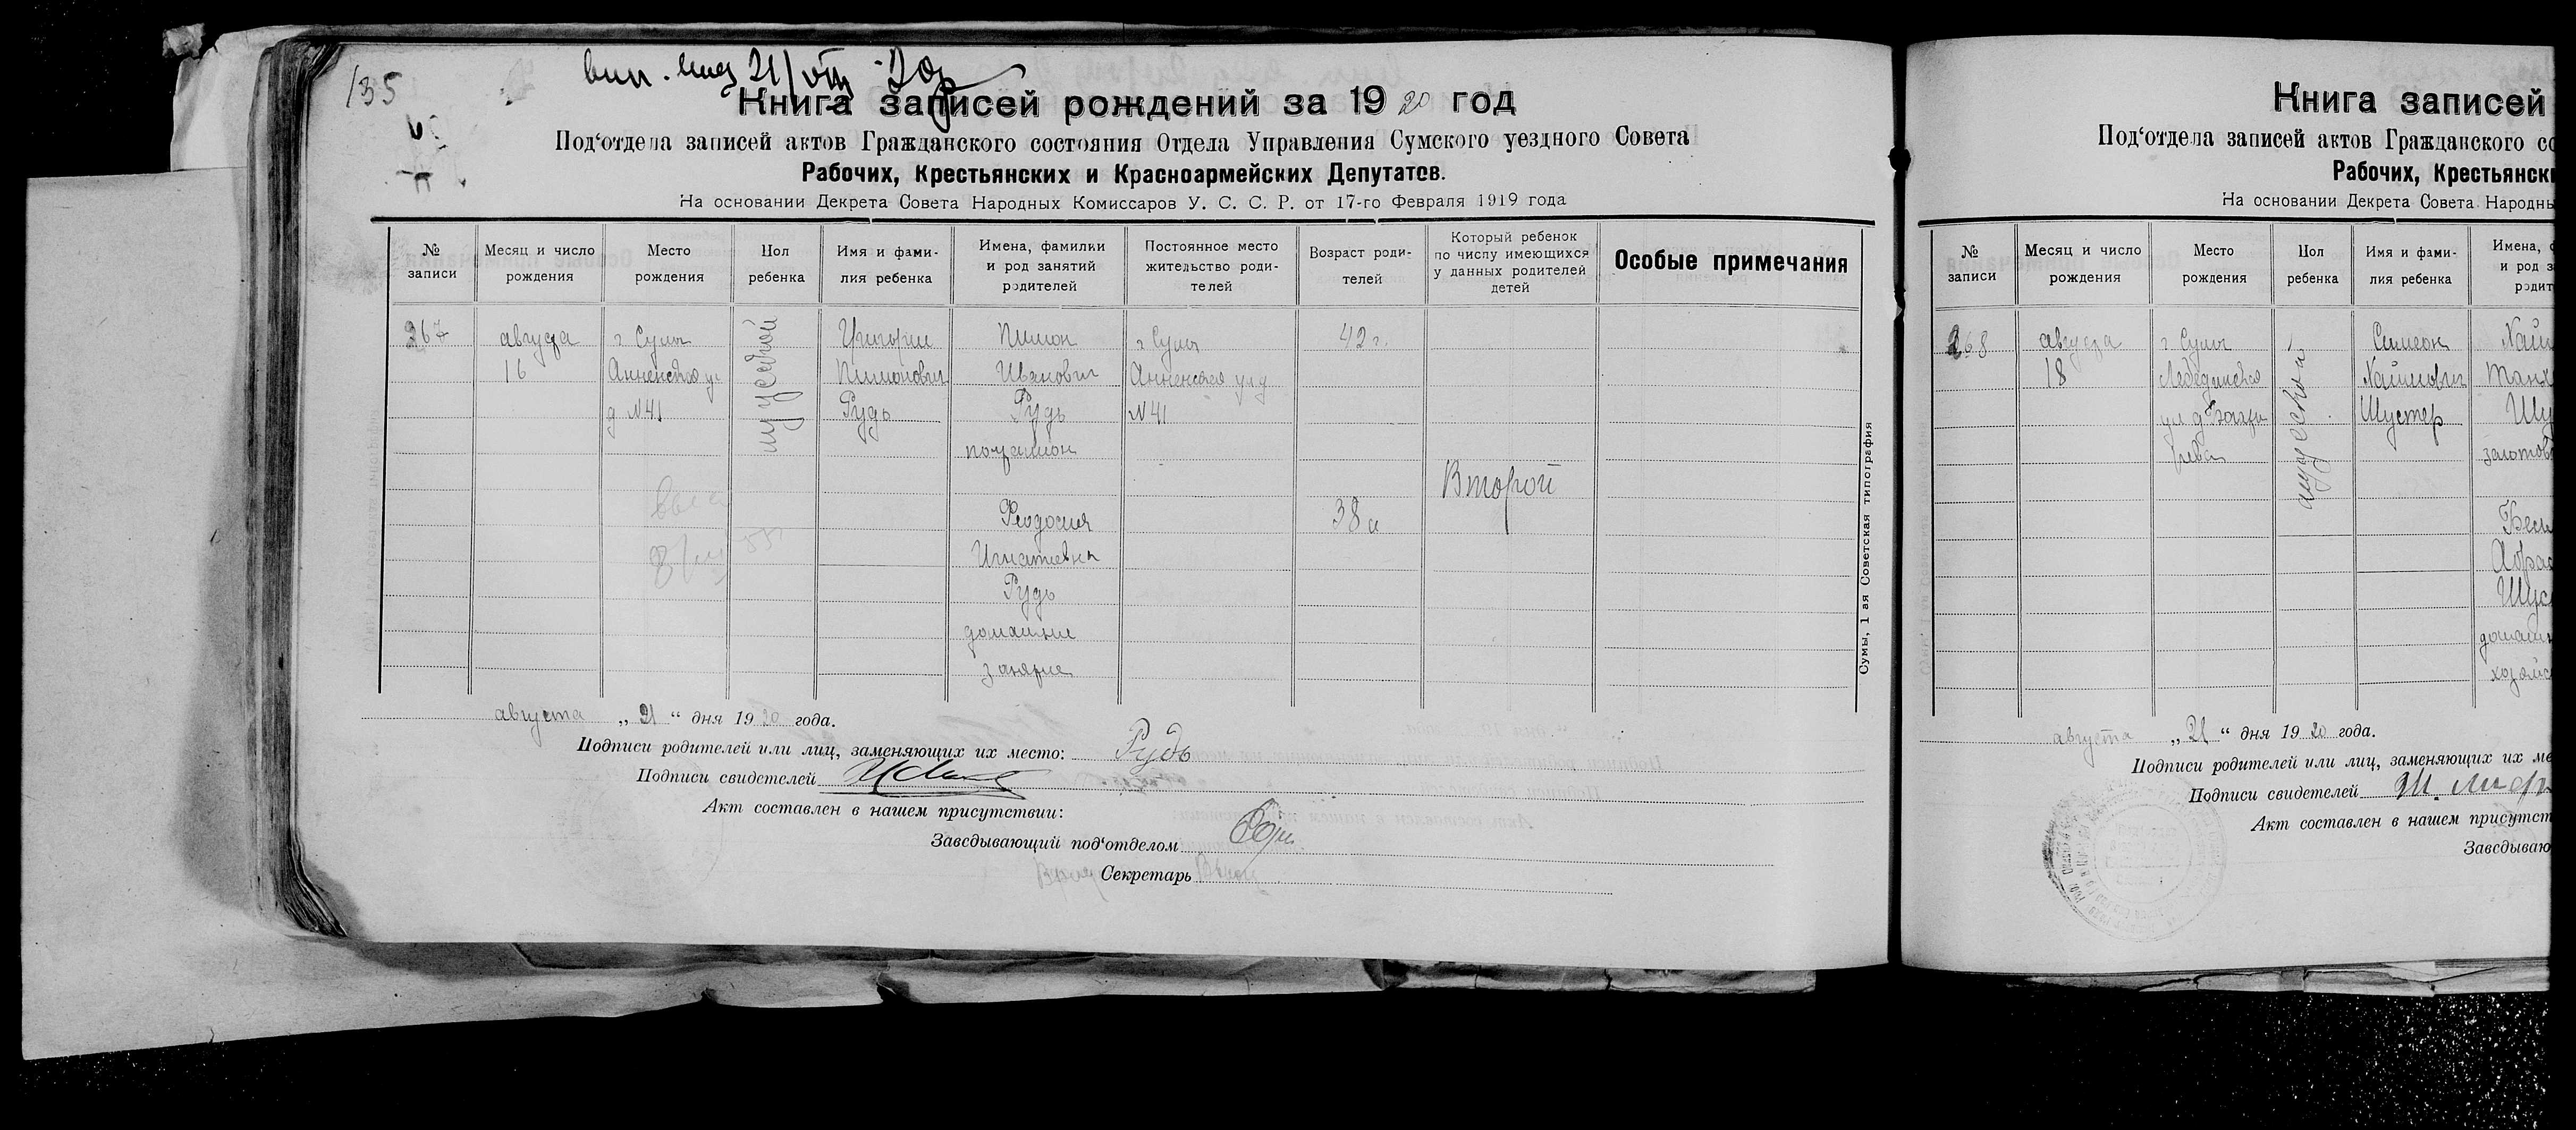 135
вип. 21/VIII-20
Книга записей рождений за 1920 год
Под‘отдела записей актов Гражданского состояния Отдела Управления Сумского уездного Совета
Рабочих, Крестьянских и Красноармейских Депутатов.
На основании Декрета Совета Народных Комиссаров У. С. С. Р. от 17-го Февраля 1919 года
№ записи
Месяц и число рождения
Место рождения
Пол ребенка
Имя и фами-
лия ребенка
Имена, фамилии
и род занятий
родителей
Постоянное место
жительство роди-
телей
Возраст роди-
телей
Который ребенок
по числу имеющихся
у данных родителей
детей
Особые примечания
267
августа
16
г Сумы
Анненская ул
д №41
мужской
Григорий
Пимонович
Рудь
Пимон
Иванович
Рудь
почталион
Феодосия
Игнатьевна
Рудь
домашние
занятие
г Сумы
Анненская ул д
№41
42 г.
38 л
Второй
Сумы, 1 ая Советская типография
августа „21“ дня 1920 года.
Подписи родителей или лиц, заменяющих их место: Рудь
Подписи свидетелей
Акт составлен в нашем присутствии:
Заведывающий под‘отделом
Секретарь
Книга записей
Под‘отдела записей актов Гражданского со
Рабочих, Крестьянски
На основании Декрета Совета Народны
№ записи
Месяц и число рождения
Место рождения
Пол ребенка
Имя и фами-
лия ребенка
Имена, ф
и род з
родит
268
августа
18
г Сумы
Лебединская
ул д
мужской
Симеон
Хаимович
Шустер
Хаим
Танх
Шу
Абра
Шус
домашн
хозяйс
августа „21“ дня 1920 года.
Подписи родителей или лиц, заменяющих их ме
Подписи свидетелей
Акт составлен в нашем присутст
Заведываю